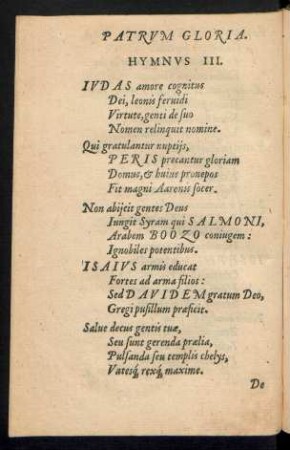 PATRVM GLORIA.
HYMNVS III.
IVDAS amore cognitus
Dei, leonis feruidi
Virtute, genti de suo
Nomen relinquit nomine.
Qui gratulantur nuptijs,
PERIS precantur gloriam
Domus, & huius pronepos
Fit magni Aarenis socer.
Non abijcit gentes Deus
Iungit Syram qui SALMONI,
Arabem BOOZO coniugem:
Ignobiles potentibus.
ISAIVS armis educat
Fortes ad arma filios:
Sed DAVIDEM gratum Deo,
Gregi pusillum præficit.
Salue decus gentis tuæ,
Seu sunt gerenda prælia,
Pulsanda seu templis chelys,
Vatesq́, rexq́, maxime.
De